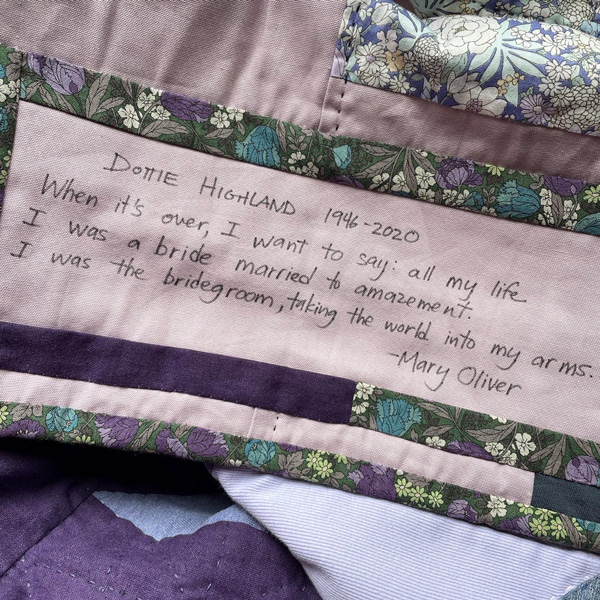 DOTTIE HIGHLAND 1946-2020
When it's over, I want to say: all my life
I was a bride married to amazement.
I was the bridegroom, taking the world into my arms.
-Mary Oliver